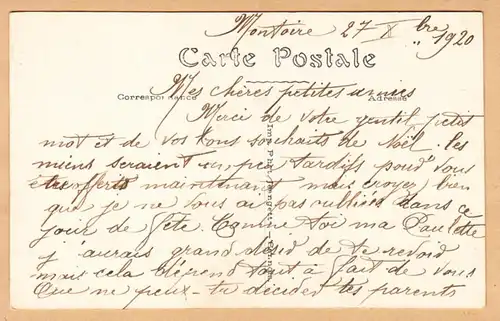 Montoire 27 Xbre 1920
Carte Postale
Mes chères petites amies
Correspondance
Adresse
Merci de votre gentil petit
mot et de vos bons souhaits de Noël. les
miens seraient un peu tardifs pour vous
être offerts maintenant mais croyez bien
que je ne vous ai pas oubliées dans ce
jour de fête. Comme toi ma Paulette
j'aurais grand désir de te revoir
mais cela dépend tout à fait de vous
Que ne peux-tu décider tes parents